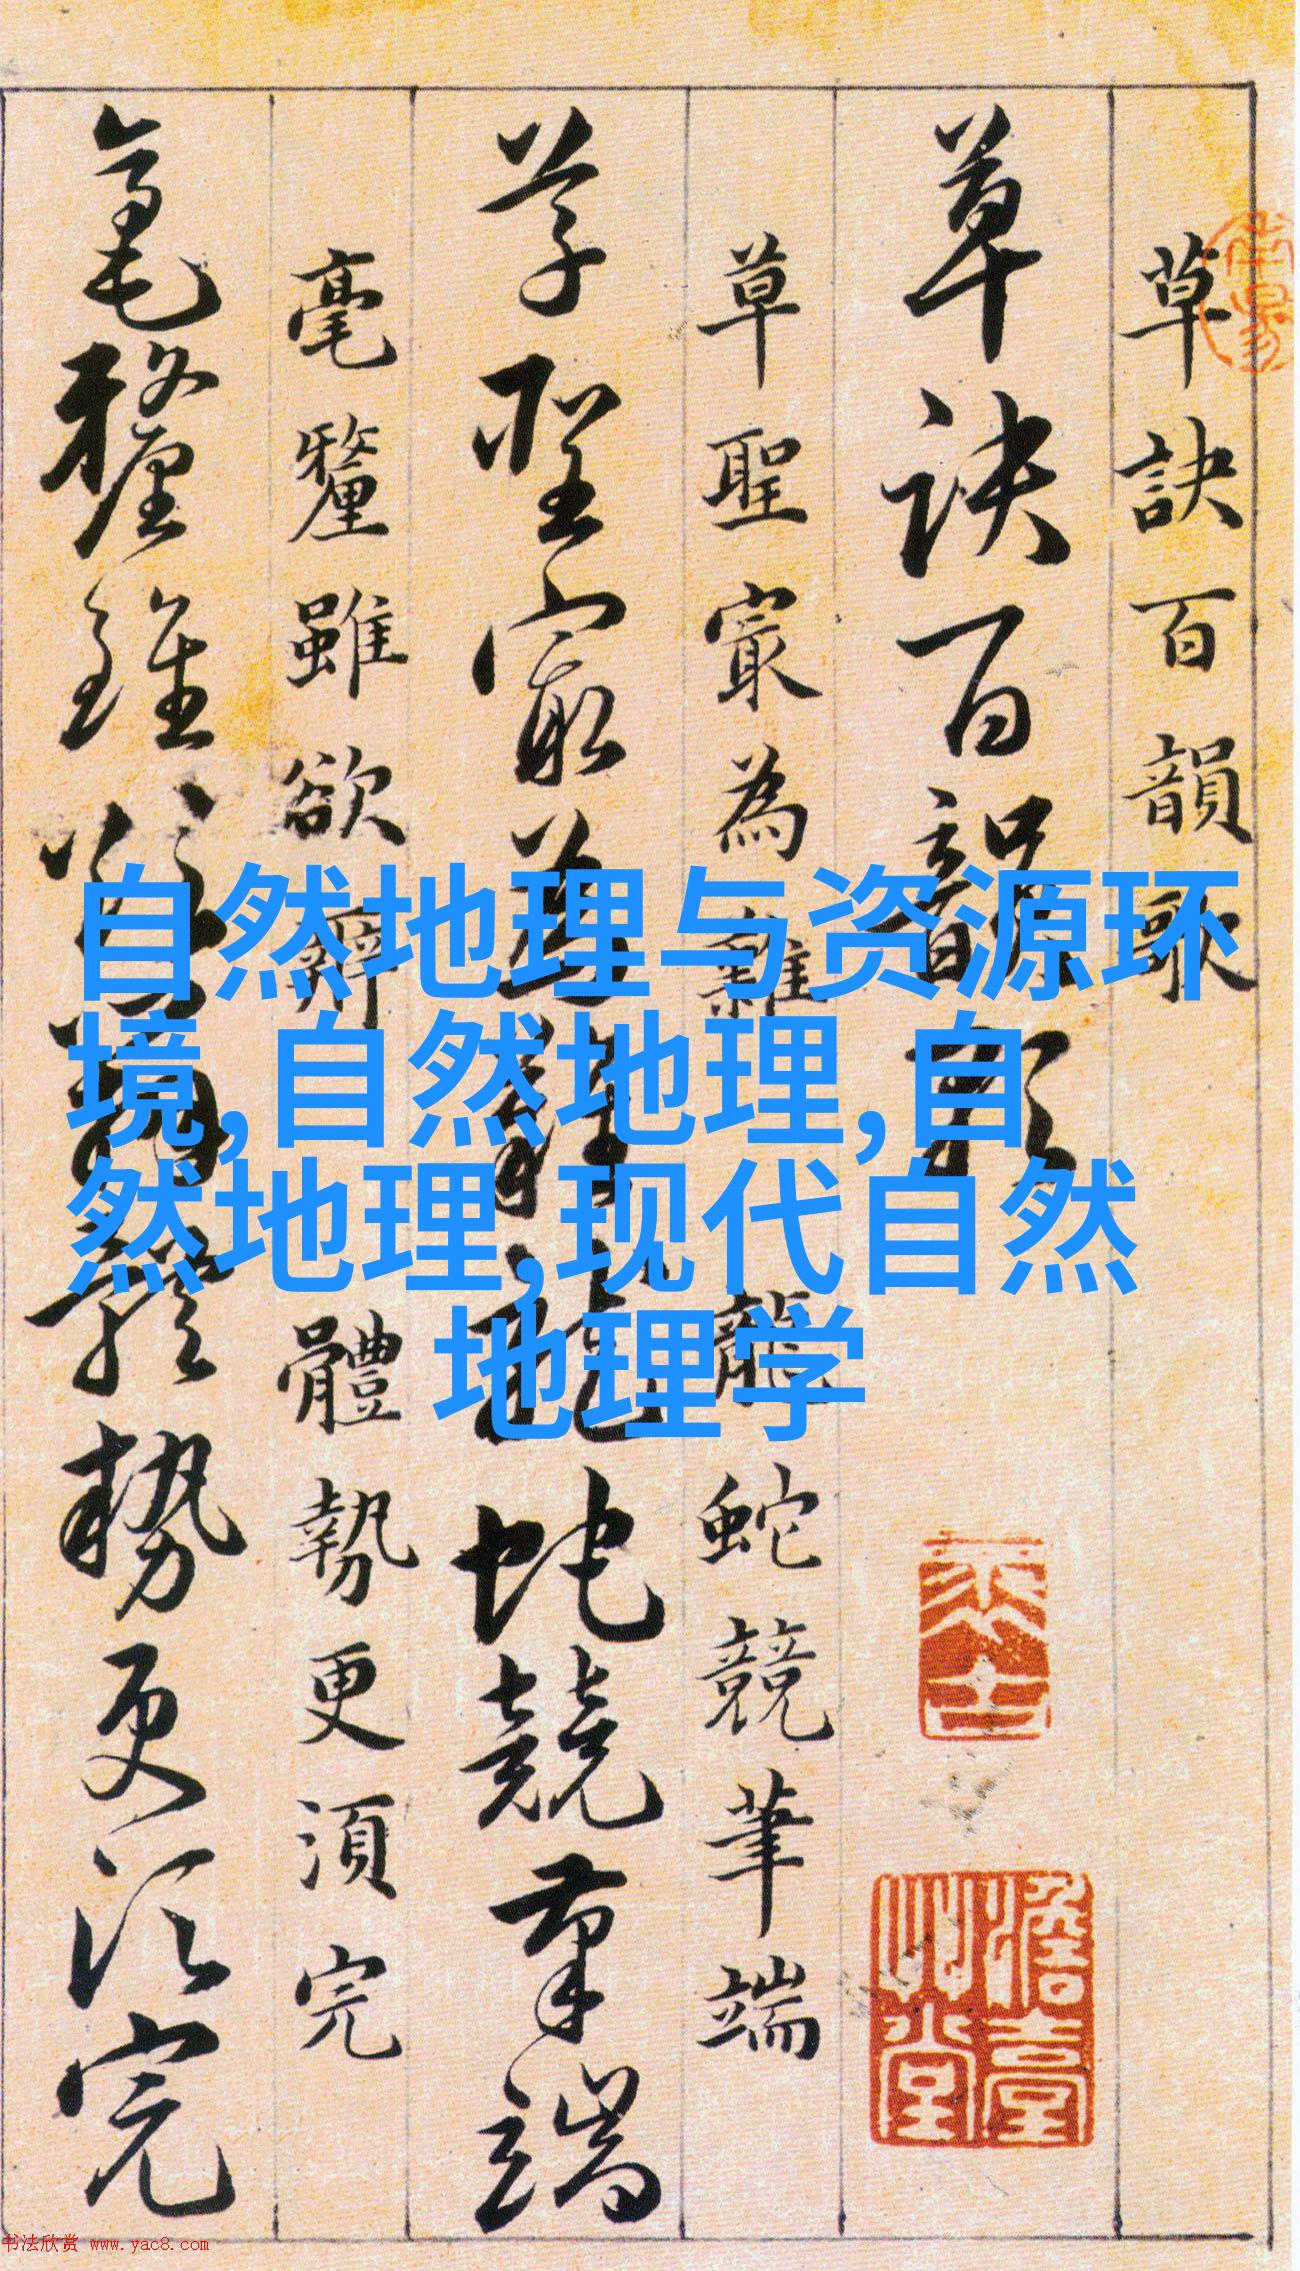 草訣百韻歌
草訣百韻歌
草聖寂為難
龍蛇競筆端
草聖寂為難龍蛇競筆端
毫釐雖欲辨
體勢更須完
毫釐雖欲辨體勢更須完
自然地理与资源环
境,自然地理,自
然地理,现代自然
地理学
书法欣赏 www.yac8.com